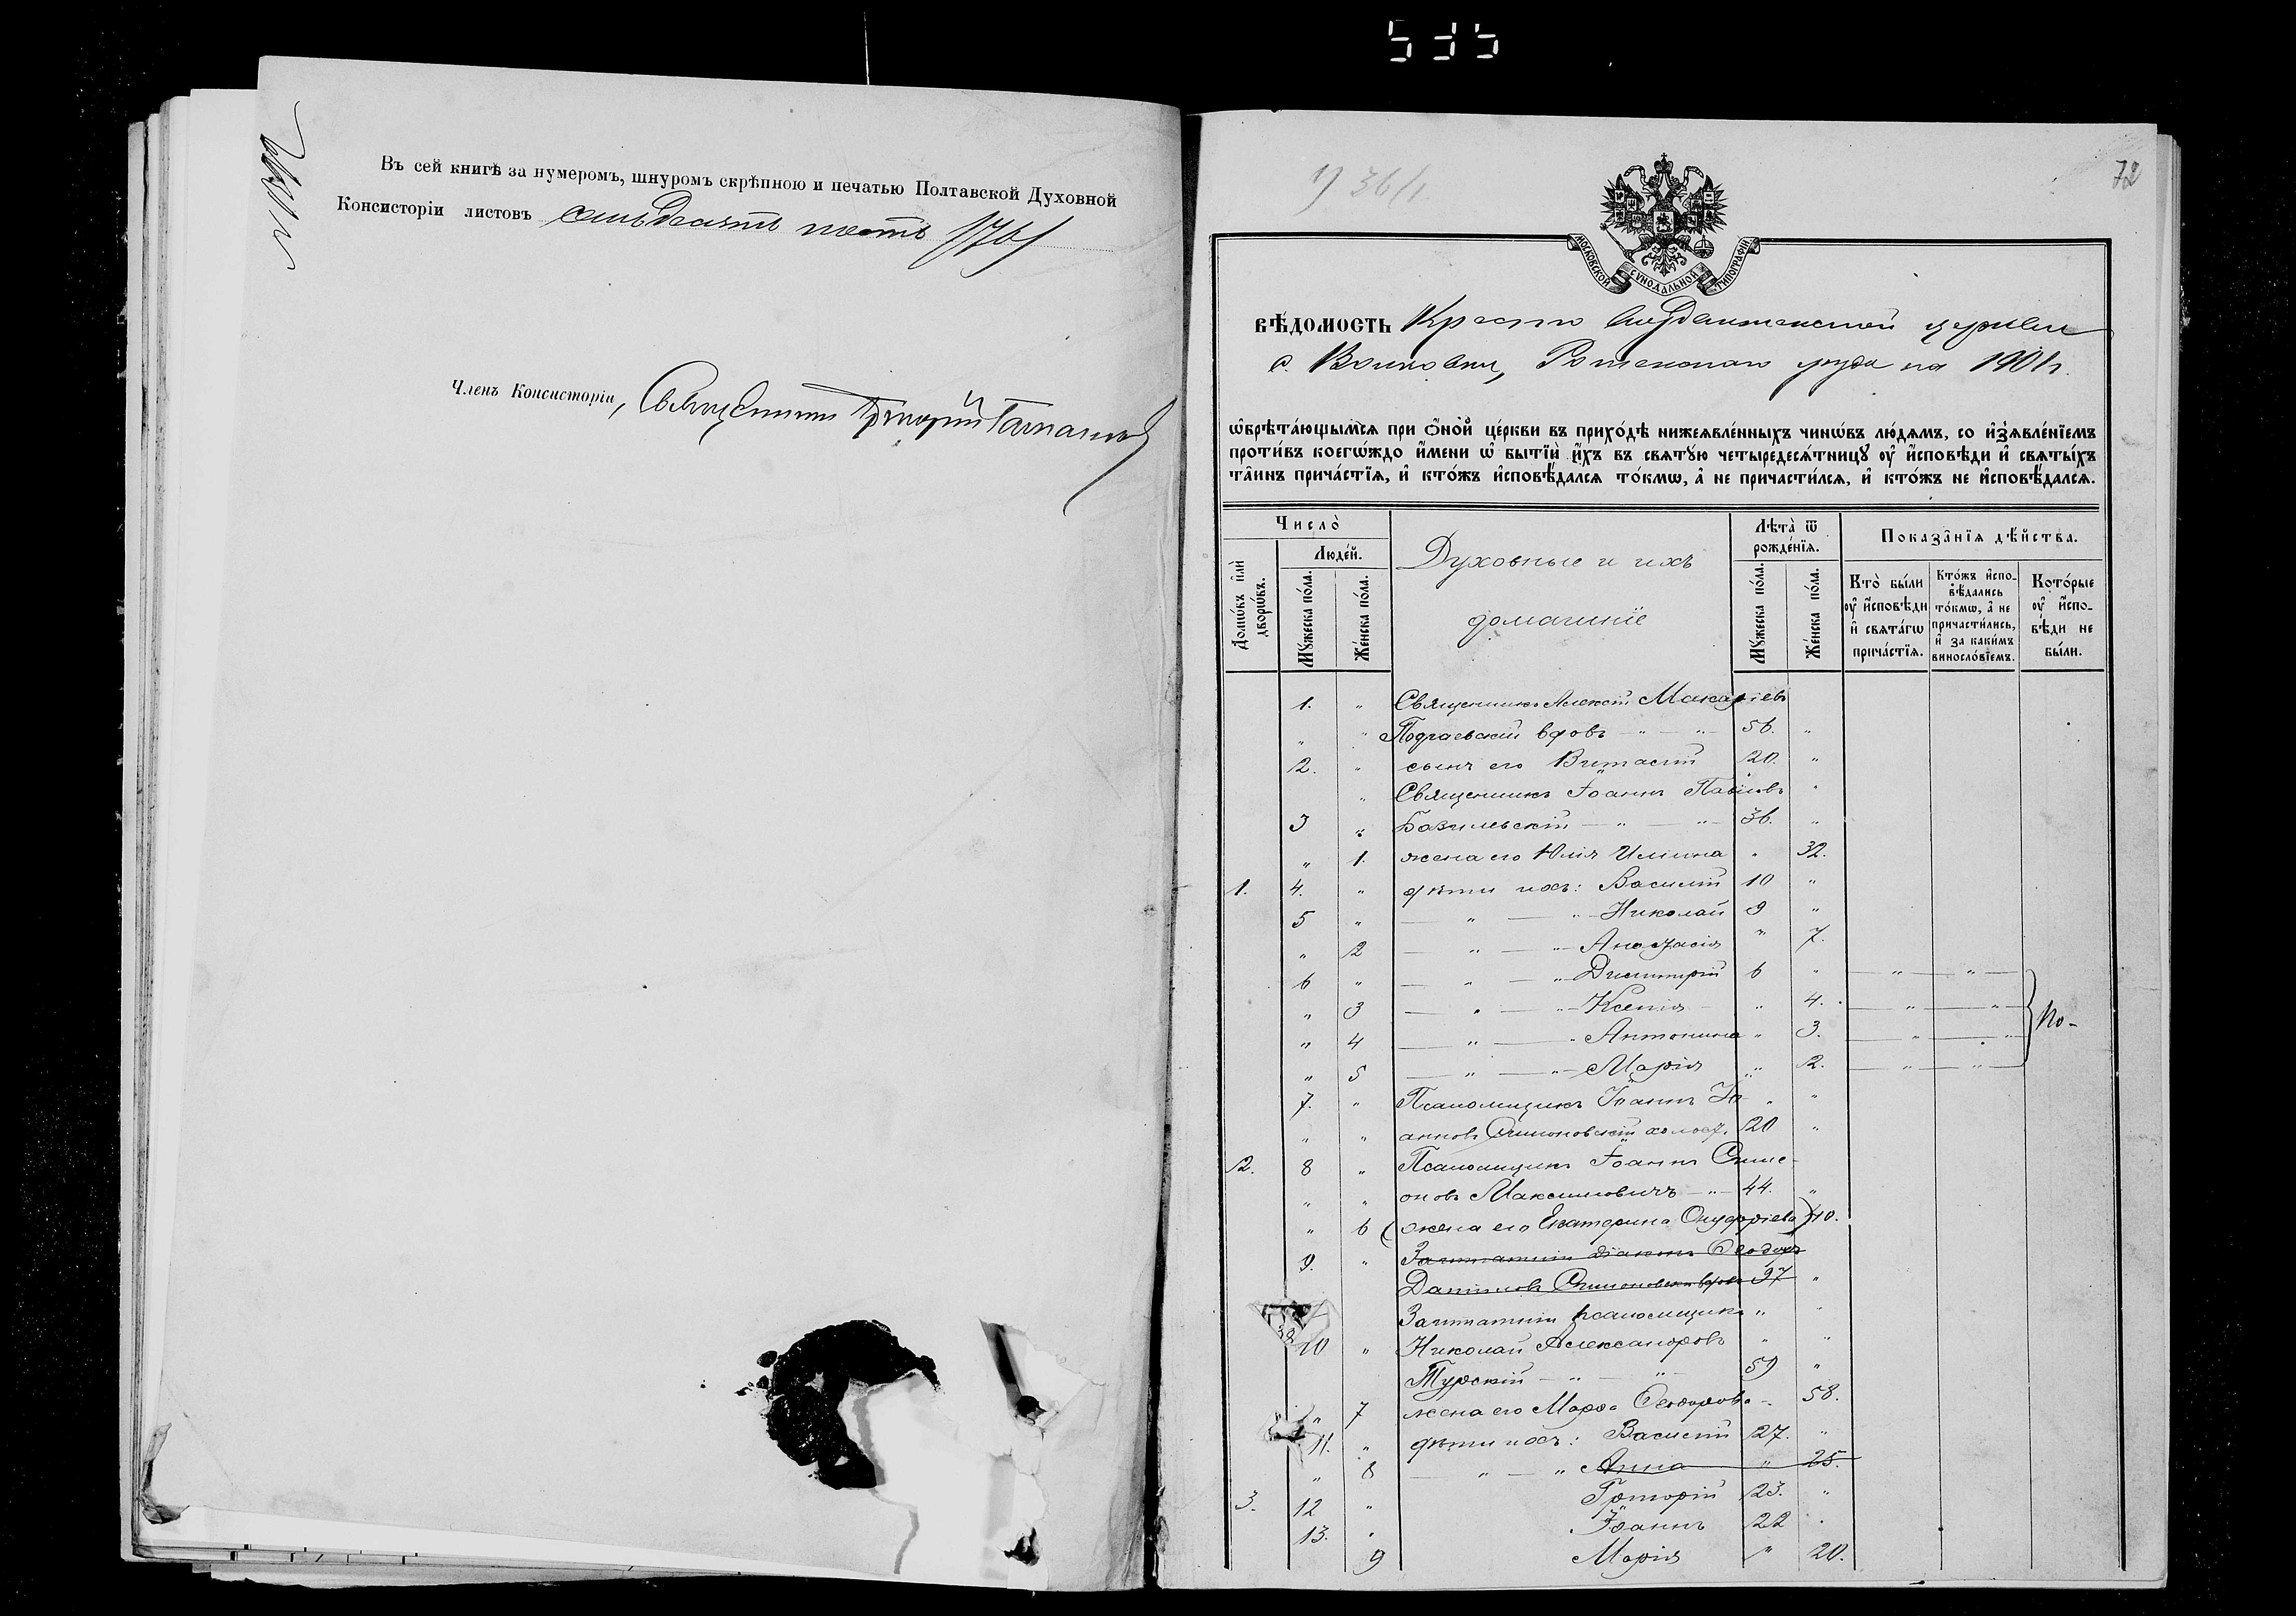 535
Въ сей книгѣ за нумеромъ, шнуромъ скрѣпною и печатью Полтавской Духовной
Консисторіи листовъ семьдесятъ шесть /76/
Членъ Консисторіи, Священникъ Григорій
72
МОСКОВСКОЙ СУНОДАЛЬНОЙ ТИПОГРАФІИ
ВѢДОМОСТЬ Кресто Воздвиженской церкви
с. Волковки, Роменскаго уѣзда на 1901 г.
ѡ҆брѣта́ющымсѧ при ѻ҆́ной це́ркви въ прихо́дѣ нижеꙗвле́нныхъ чинѡ́въ лю́дѧмъ, со и҆з̾ѧвле́нїемъ
проти́въ коегѡ́ждо и҆́мени ѡ҆ бытїѝ и҆́хъ въ свѧту́ю четыредесѧ́тницꙋ ᲂу҆ и҆́сповѣди и҆ свѧты́хъ
та̑инъ прича́стїѧ, и҆ кто́жъ и҆сповѣ́далсѧ то́кмѡ, а҆ не причасти́лсѧ, и҆ кто́жъ не и҆сповѣ́далсѧ.
Число̀
Людéй.
Домѡ́въ и҆лѝ дворѡ́въ.
Мꙋ́жеска по́ла.
Же́нска по́ла.
Духовные и ихъ
домашніе
Лѣта̀ ѿ рожде́нїѧ.
Мꙋ́жеска по́ла.
Же́нска по́ла.
Показа̑нїѧ дѣ́йства.
Кто̀ бы́ли ᲂу҆ и҆́сповѣди и҆ свѧта́гѡ прича́стїѧ.
Кто́жъ и҆сповѣ́дались то́кмѡ, а҆ не причасти́лись, и҆ за каки́мъ виносло́вїемъ.
Кото́рые ᲂу҆ и҆́сповѣди не бы́ли.
1. " Священникъ Алексій Макаріевъ
" " Подгаевскій вдовъ — " — " — 56. "
2. " сынъ его Виталій 20. "
" Священникъ Іоаннъ Павловъ "
3 " Базилевскій — " — " — 36. "
" 1. жена его Юлія Ильина " 32.
1. 4. " дѣти ихъ: Василій 10 "
5 " — " — " — Николай 9 "
" 2 — " — " — Анастасія " 7.
6 " — " — " Димитрій 6 " — " — " —
" 3 — " — " — Ксенія " 4. — " — " — } Мо-
" 4 — " — " Антонина " 3. — " — " —
" 5 — " — " — Марія " 2. — " — " —
7. " Псаломщикъ Іоаннъ Іо- " "
" " анновъ Симоновскій холост. 20 "
2. 8 " Псаломщикъ Іоаннъ Симе-
" " оновъ Максимовичъ — " — 44. "
" 6 (жена его Екатерина Онуфріева) 40.
9. " Заштатный діаконъ Ѳеодоръ
Даніиловъ Симоновскій вдовъ 97 "
Заштатный псаломщикъ " "
10 " Николай Александровъ " "
Турскій — " — " — 59 "
" 7 жена его Марѳа Ѳеодорова — 58.
11. " дѣти ихъ: Василій 27. "
" 8 — " — " Анна " 25.
3. 12 " Григорій 23. "
13. " Іоаннъ 22 "
9 Марія " 20.